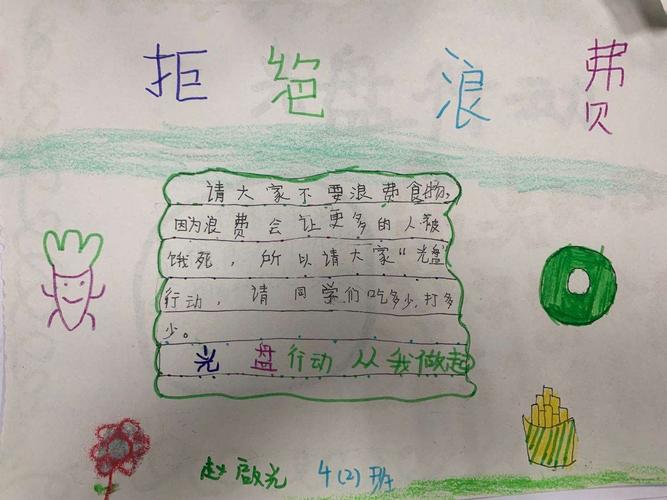 拒绝浪费
请大家不要浪费食物,
因为浪费会让更多的人被
饿死，所以请大家“光盘”
行动，请同学们吃多少,打多
少。
光盘行动从我做起
赵启光 4(2)班